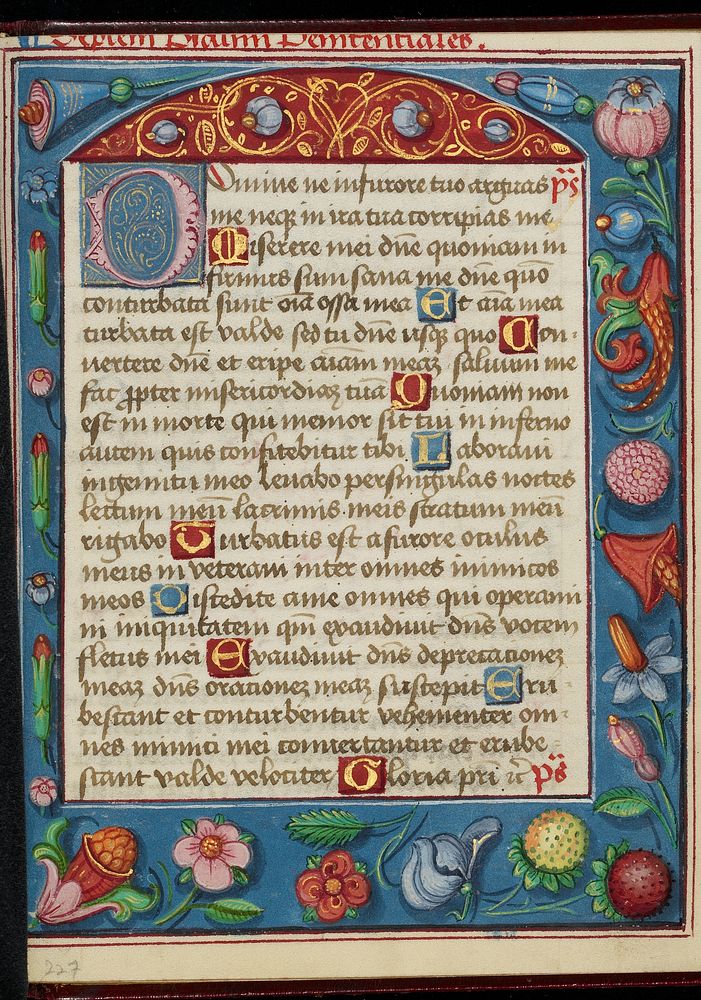 Septem psalmi Penitentiales.
Domine ne in furore tuo arguas ps
me neqz in ira tua corripias me
Miserere mei dñe quoniam in
firmus sum sana me dñe quo
conturbata sunt oĩa ossa mea Et aĩa mea
turbata est valde sed tu dñe usqz quo Con-
vertere dñe et eripe aĩam meaz saluum me
fac ꝓpter misericordiaz tuã Quoniam non
est in morte qui memor sit tui in inferno
autem quis confitebitur tibi Laboraui
in gemitu meo lauabo per singulas noctes
lectum meũ lacrimis meis stratum meũ
rigabo Turbatus est a furore oculus
meus in veteraui inter omnes inimicos
meos Discedite a me omnes qui operami
ni iniquitatem qm̃ exaudiuit dñs vocem
fletus mei Exaudiuit dñs deprecationez
meaz dñs orationez meaz suscepit Eru
bescant et conturbentur vehementer om-
nes inimici mei conuertantur et erube
scant valde velociter Gloria pr̃i ic̃ ps
227